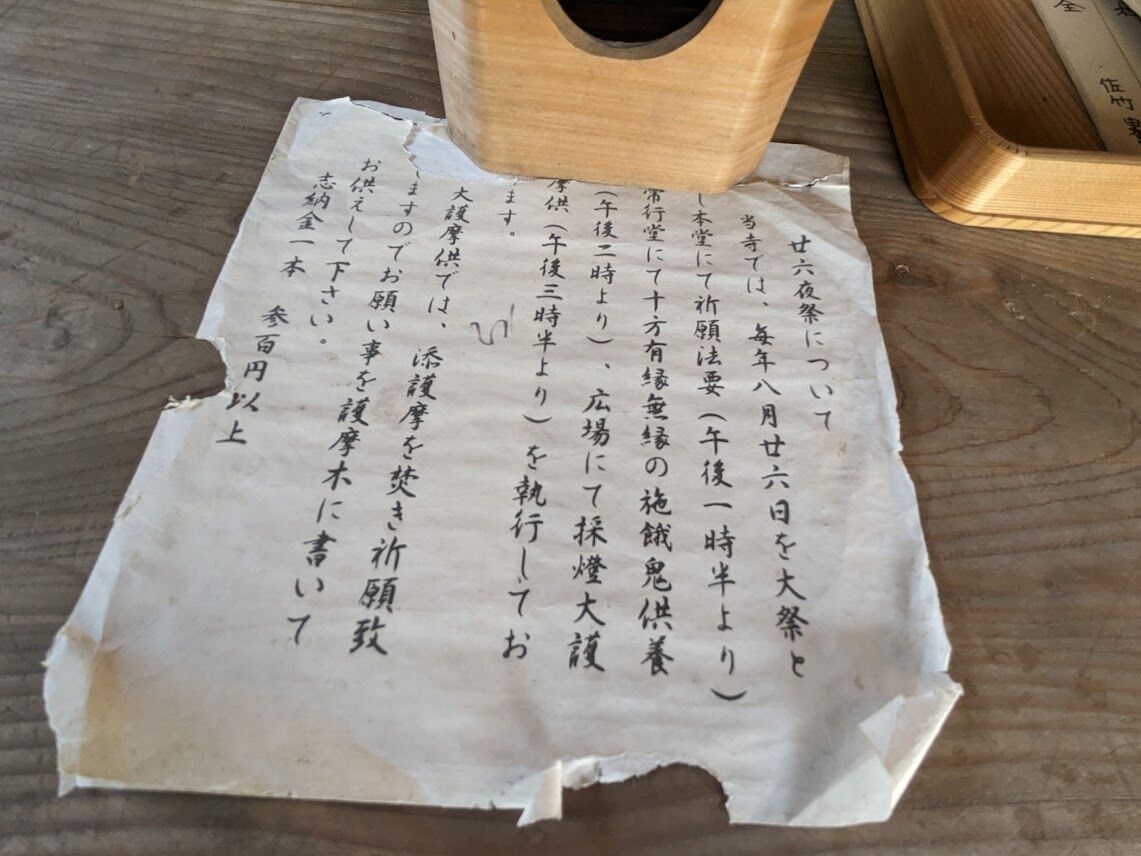 廿六夜祭について
当寺では、毎年八月廿六日を大祭と
し本堂にて祈願法要（午後一時半より）
常行堂にて十方有縁無縁の施餓鬼供養
（午後二時より）、広場にて採燈大護
摩供（午後三時半より）を執行してお
ます。
大護摩供では、添護摩を焚き祈願致
しますのでお願い事を護摩木に書いて
お供えして下さい。
志納金一本　参百円以上
佐竹